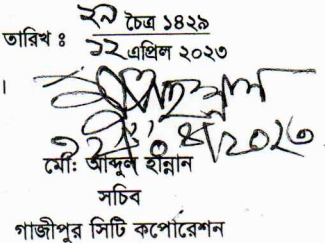 তারিখ ঃ ২৯ চৈত্র ১৪২৯
১২ এপ্রিল ২০২৩
।
১২.০৪.২০২৩
মোঃ আব্দুল হান্নান
সচিব
গাজীপুর সিটি কর্পোরেশন